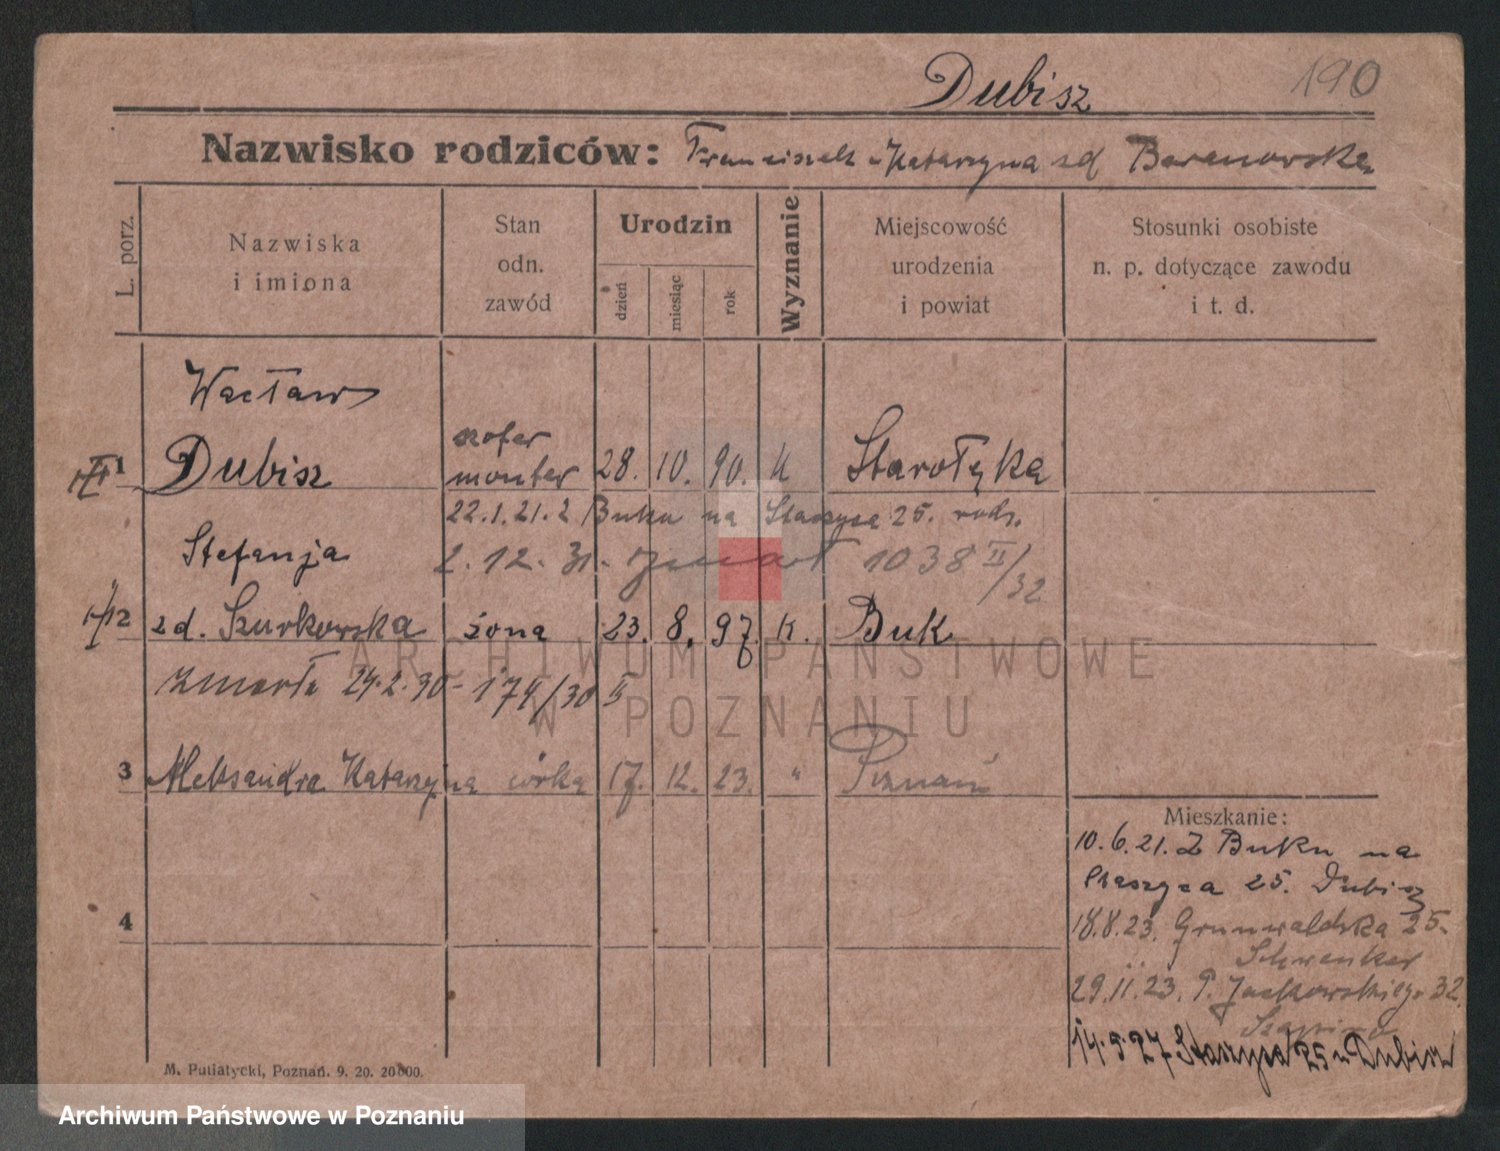 Dubisz
190
Nazwisko rodziców: Franciszek - Katarzyna zd Baranowska
L. porz.
Nazwiska
i imiona
Stan
odn.
zawód
Urodzin
dzień
miesiąc
rok
Wyznanie
Miejscowość
urodzenia
i powiat
Stosunki osobiste
n. p. dotyczące zawodu
i t. d.
Wacław
1 Dubisz szofer monter 28. 10. 90. K Starołęka
22.1.21. z Buku na Staszyca 25. rodz.
Stefanja
2.12.31. zmarł 1038 II/32
2 zd. Szurkowska żona 23. 8. 97. K. Buk
zmarła 24.2.30 - 174/30 II
3 Aleksandra Katarzyna córka 17. 12. 23. " Poznań
4
Mieszkanie:
10.6.21. Z Buku na
Staszyca 25. Dubisz
18.8.23. Grunwaldzka 25.
Schwenker
29.11.23. P. Jackowskiego 32.
14.9.27 Staszyca 25 u Dubisz
M. Putiatycki, Poznań. 9. 20. 20000.
ARCHIWUM PAŃSTWOWE
W POZNANIU
Archiwum Państwowe w Poznaniu